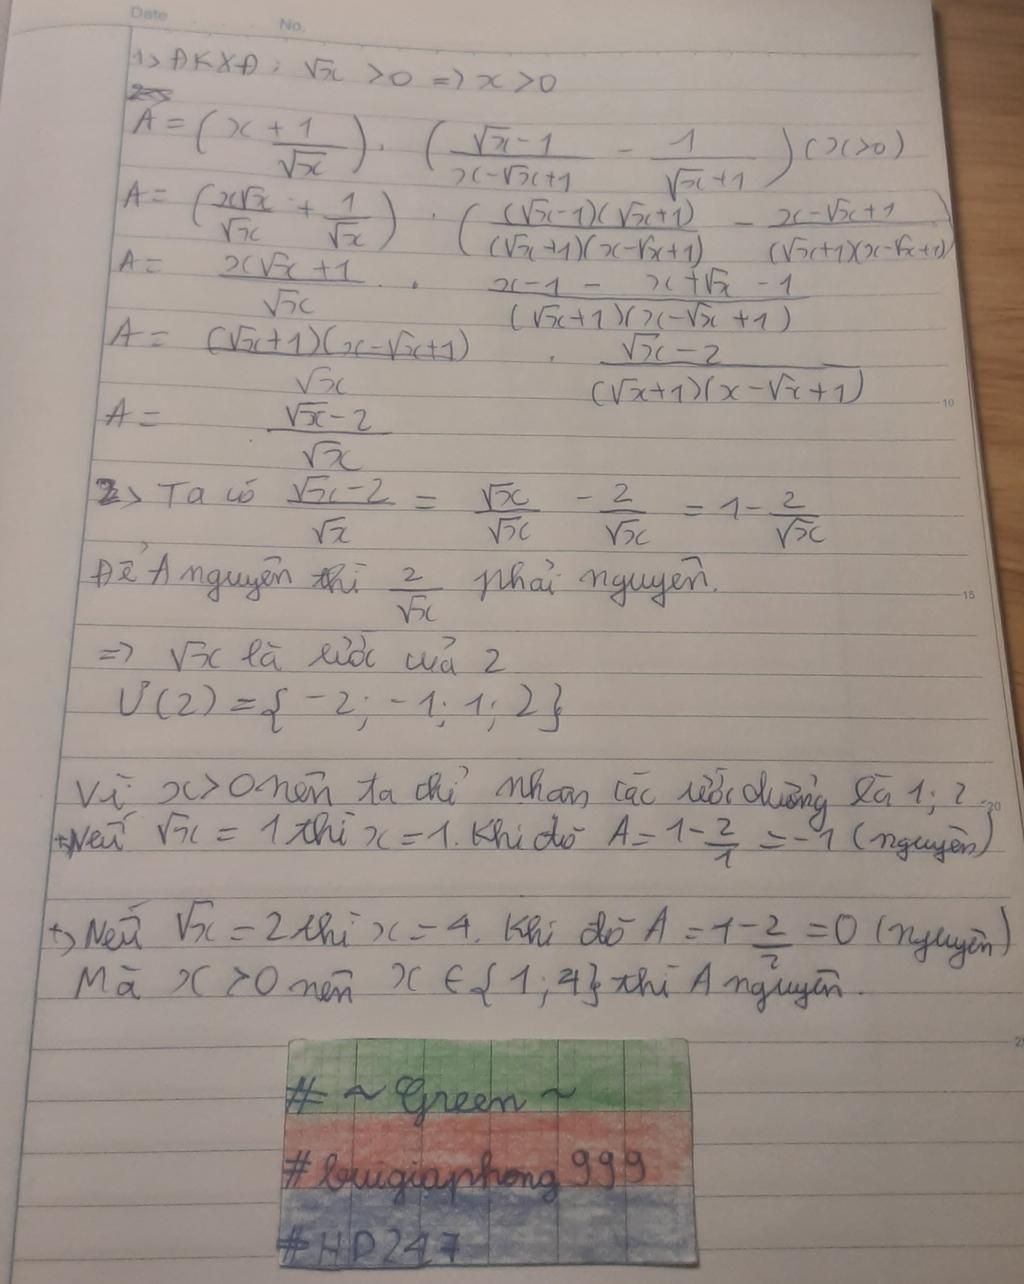 Date No.
1> ĐKXĐ: √x > 0 => x > 0
A = (x + 1/√x) . ((√x-1)/(x-√x+1) - 1/(√x+1)) (x>0)
A = (x√x/√x + 1/√x) . ((√x-1)(√x+1)/(√x+1)(x-√x+1) - (x-√x+1)/(√x+1)(x-√x+1))
A = (x√x+1)/√x . (x-1 - x+√x-1)/(√x+1)(x-√x+1)
A = (√x+1)(x-√x+1)/√x . (√x-2)/(√x+1)(x-√x+1)
10
A = (√x-2)/√x
2> Ta có (√x-2)/√x = √x/√x - 2/√x = 1 - 2/√x
Để A nguyên thì 2/√x phải nguyên.
15
=> √x là ước của 2
Ư(2) = {-2; -1; 1; 2}
Vì x>0 nên ta chỉ nhận các ước dương là 1; 2
20
+, Nếu √x = 1 thì x = 1. Khi đó A = 1 - 2/1 = -1 (nguyên)
+, Nếu √x = 2 thì x = 4. Khi đó A = 1 - 2/2 = 0 (nguyên)
Mà x > 0 nên x ∈ {1; 4} thì A nguyên.
# ~ Green ~
# buigiaphong 999
# HD247